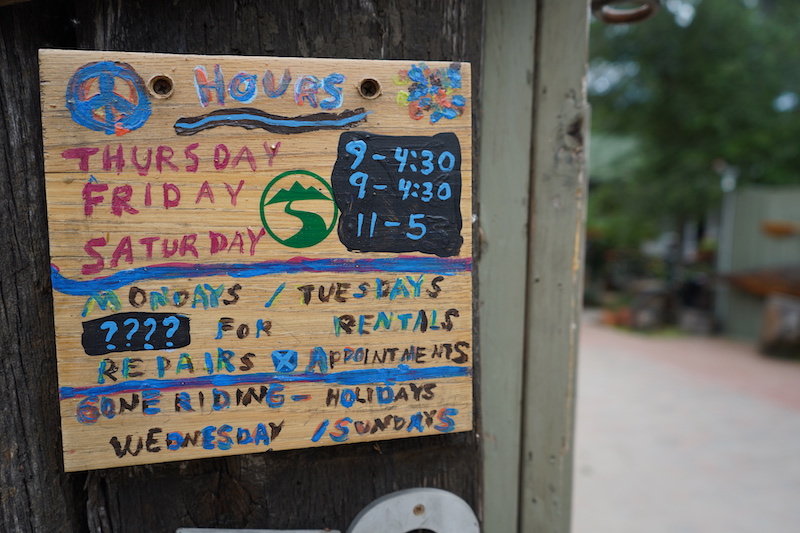 HOURS
THURSDAY 9-4:30
FRIDAY 9-4:30
SATURDAY 11-5
MONDAYS / TUESDAYS
???? FOR RENTALS
REPAIRS & APPOINTMENTS
GONE RIDING - HOLIDAYS
WEDNESDAY / SUNDAYS